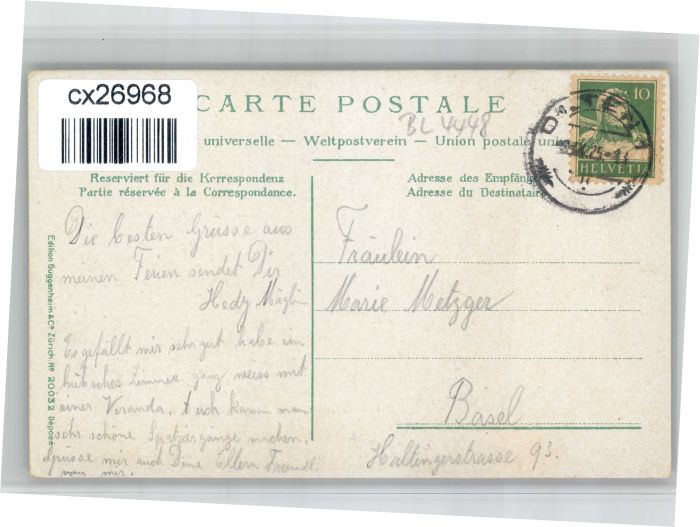 cx26968
CARTE POSTALE
BL 4448
universelle — Weltpostverein — Union postale uni
Reserviert für die Korrespondenz
Partie réservée à la Correspondance.
Adresse des Empfäng
Adresse du Destinataire
10
HELVETIA
OLTEN 1
Die besten Grüsse aus
meinen Ferien sendet Dir
Hedy Mägli
Es gefällt mir sehr gut habe ein
hübsches Zimmer ganz weiss mit
einer Veranda. Auch kann man
sehr schöne Spaziergänge machen.
Grüsse mir auch Deine Eltern
von mir.
Fräulein
Marie Metzger
Basel
Haltingerstrasse 93.
Edition Guggenheim & Co Zürich. No 20032 Déposé